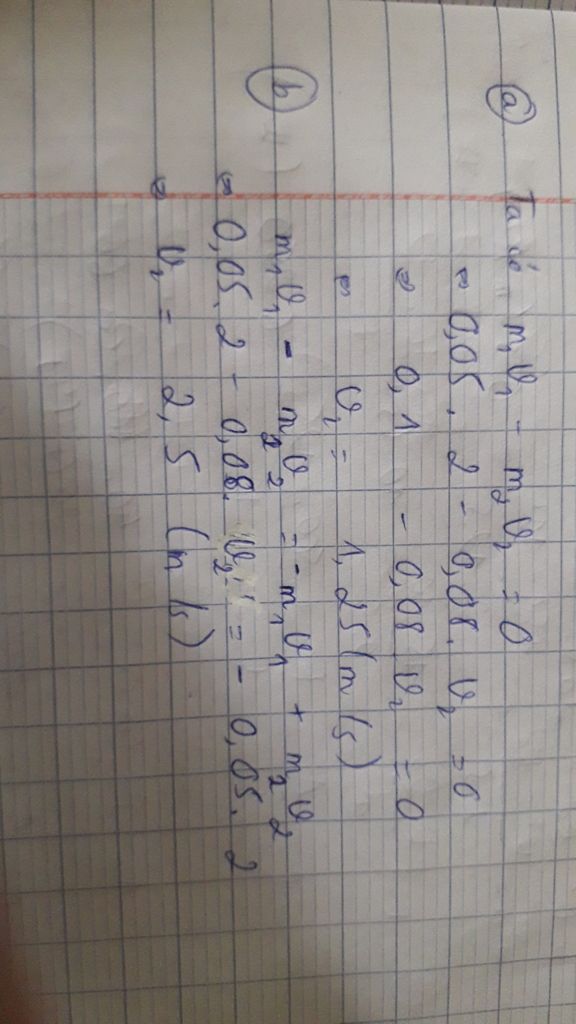 ⓐ Ta có m₁v₁ - m₂v₂ = 0
⇔ 0,05. 2 - 0,08. v₂ = 0
⇔ 0,1 - 0,08 v₂ = 0
⇔ v₂ = 1,25 (m/s)
ⓑ m₁v₁ - m₂v₂ = -m₁v₁ + m₂v₂
⇔ 0,05. 2 - 0,08. v₂ = - 0,05. 2
⇔ v₂ = 2,5 (m/s)